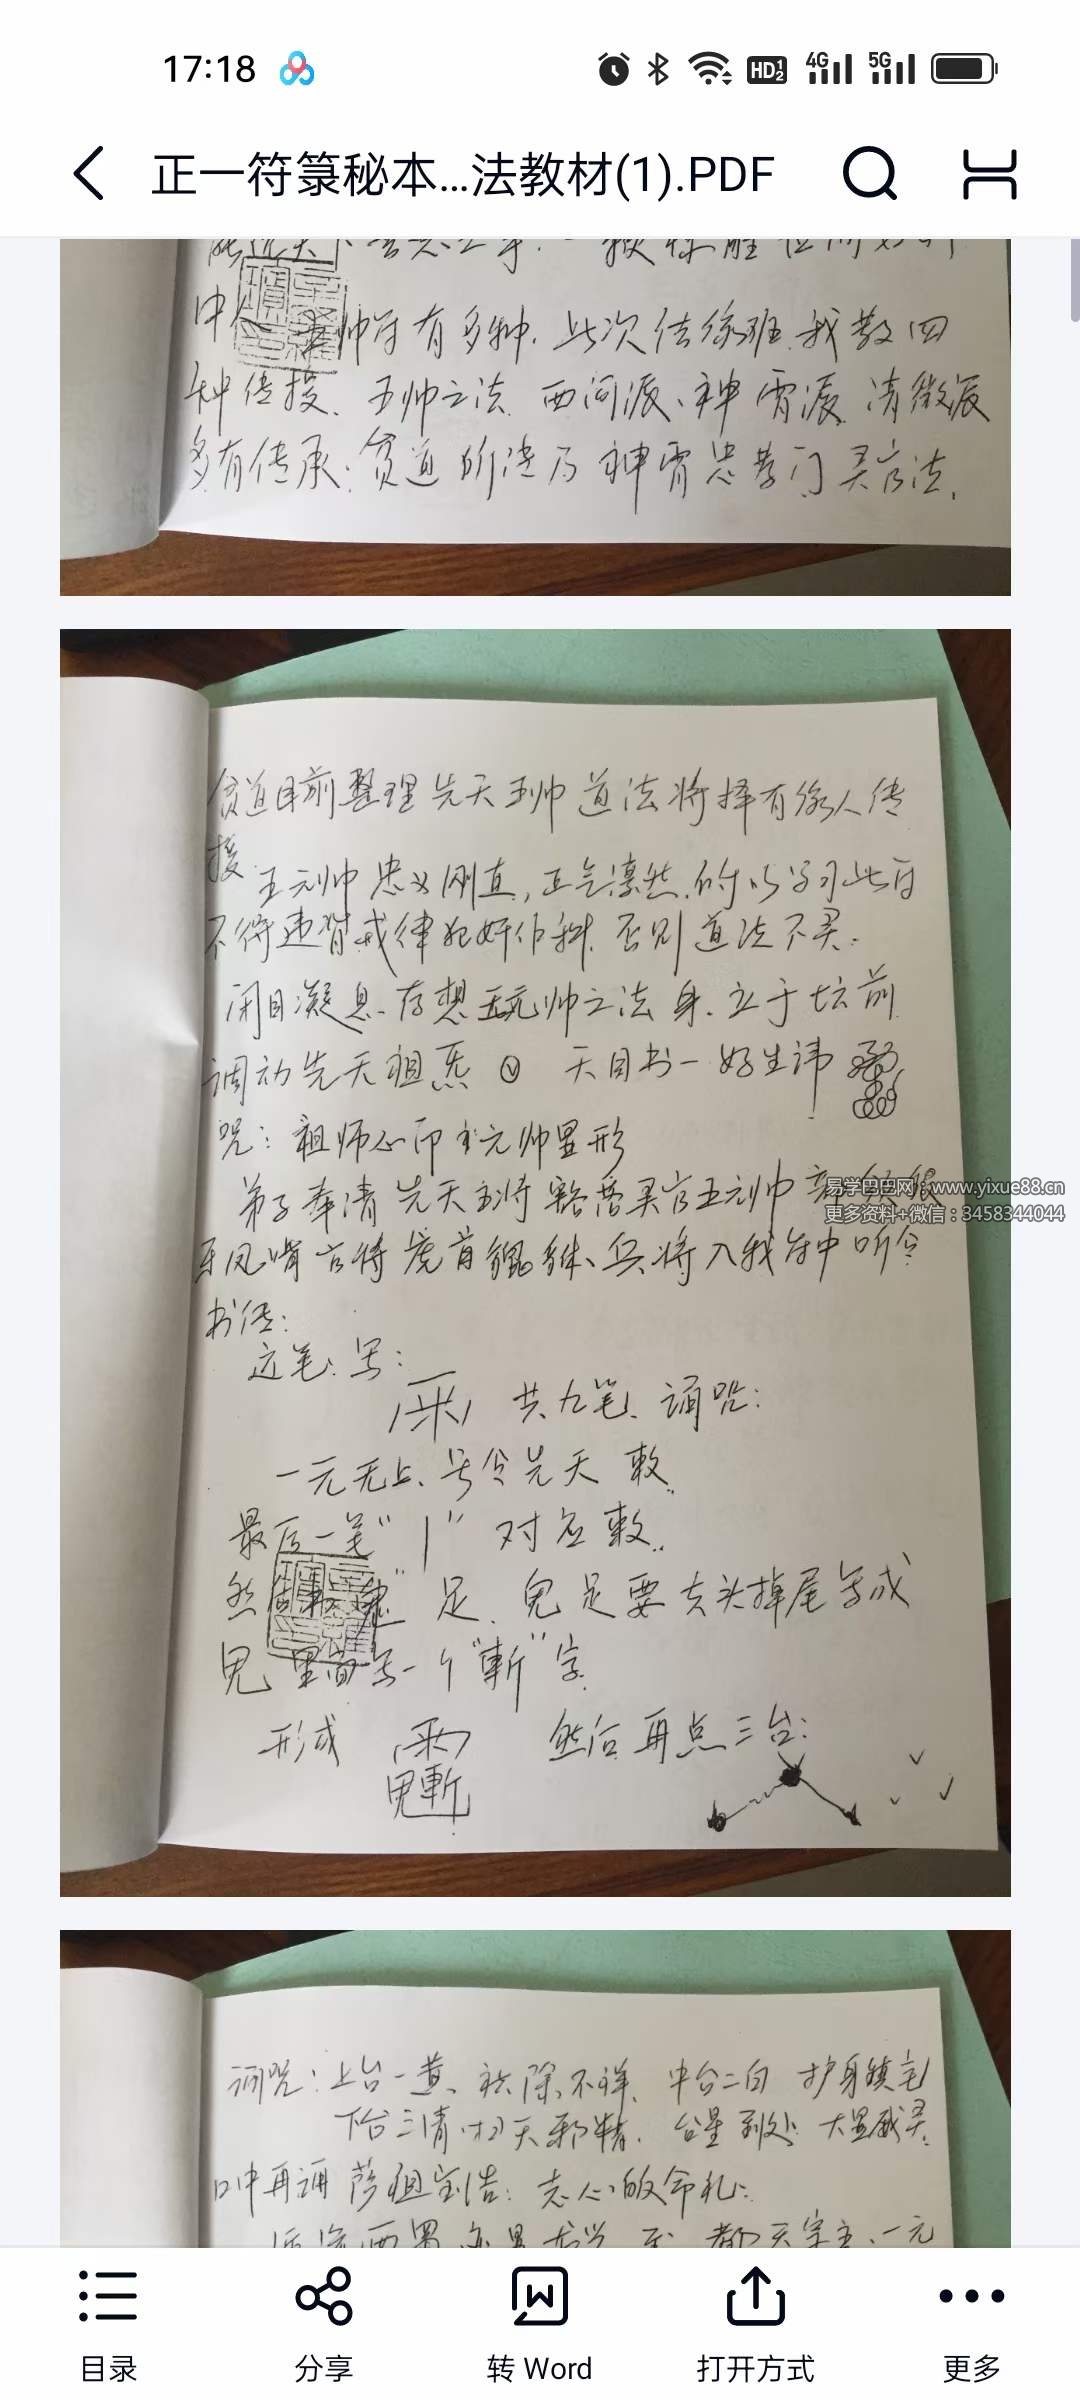 17:18
HD 1 2 4G 5G
正一符箓秘本...法教材(1).PDF
王帅符有多种.此次结缘班.我教四
种传授、王帅之法.西河派、神霄派.清微派
多有传承.贫道所传乃神霄忠孝门灵官法.
贫道目前整理先天王帅道法将择有缘人传
授.王元帅忠义刚直,正气凛然.所以学习此符
不得违背戒律犯奸作科.否则道法不灵.
闭目凝息.存想王元帅之法身.立于坛前.
调动先天祖炁 天目书一好生讳
咒:祖师心印王元帅显形
弟子奉请先天主将豁落灵官王元帅
兵将入我符中听令
书传:
运笔.写:
共九笔.诵咒:
一元无上、号令先天敕.
最后一笔"丨"对应敕..
足.鬼足要去头掉尾写成
里面写一个"斬"字.
形成 然后再点三台:
易学巴巴网:www.yixue88.cn
更多资料+微信:3458344044
诵咒:上台一黄、祛除不祥.中台二白 护身镇宅
下台三清.扫灭邪精.台星到处 大显威灵.
口中再诵萨祖宝诰:志心皈命礼:
目录
分享
转 Word
打开方式
更多